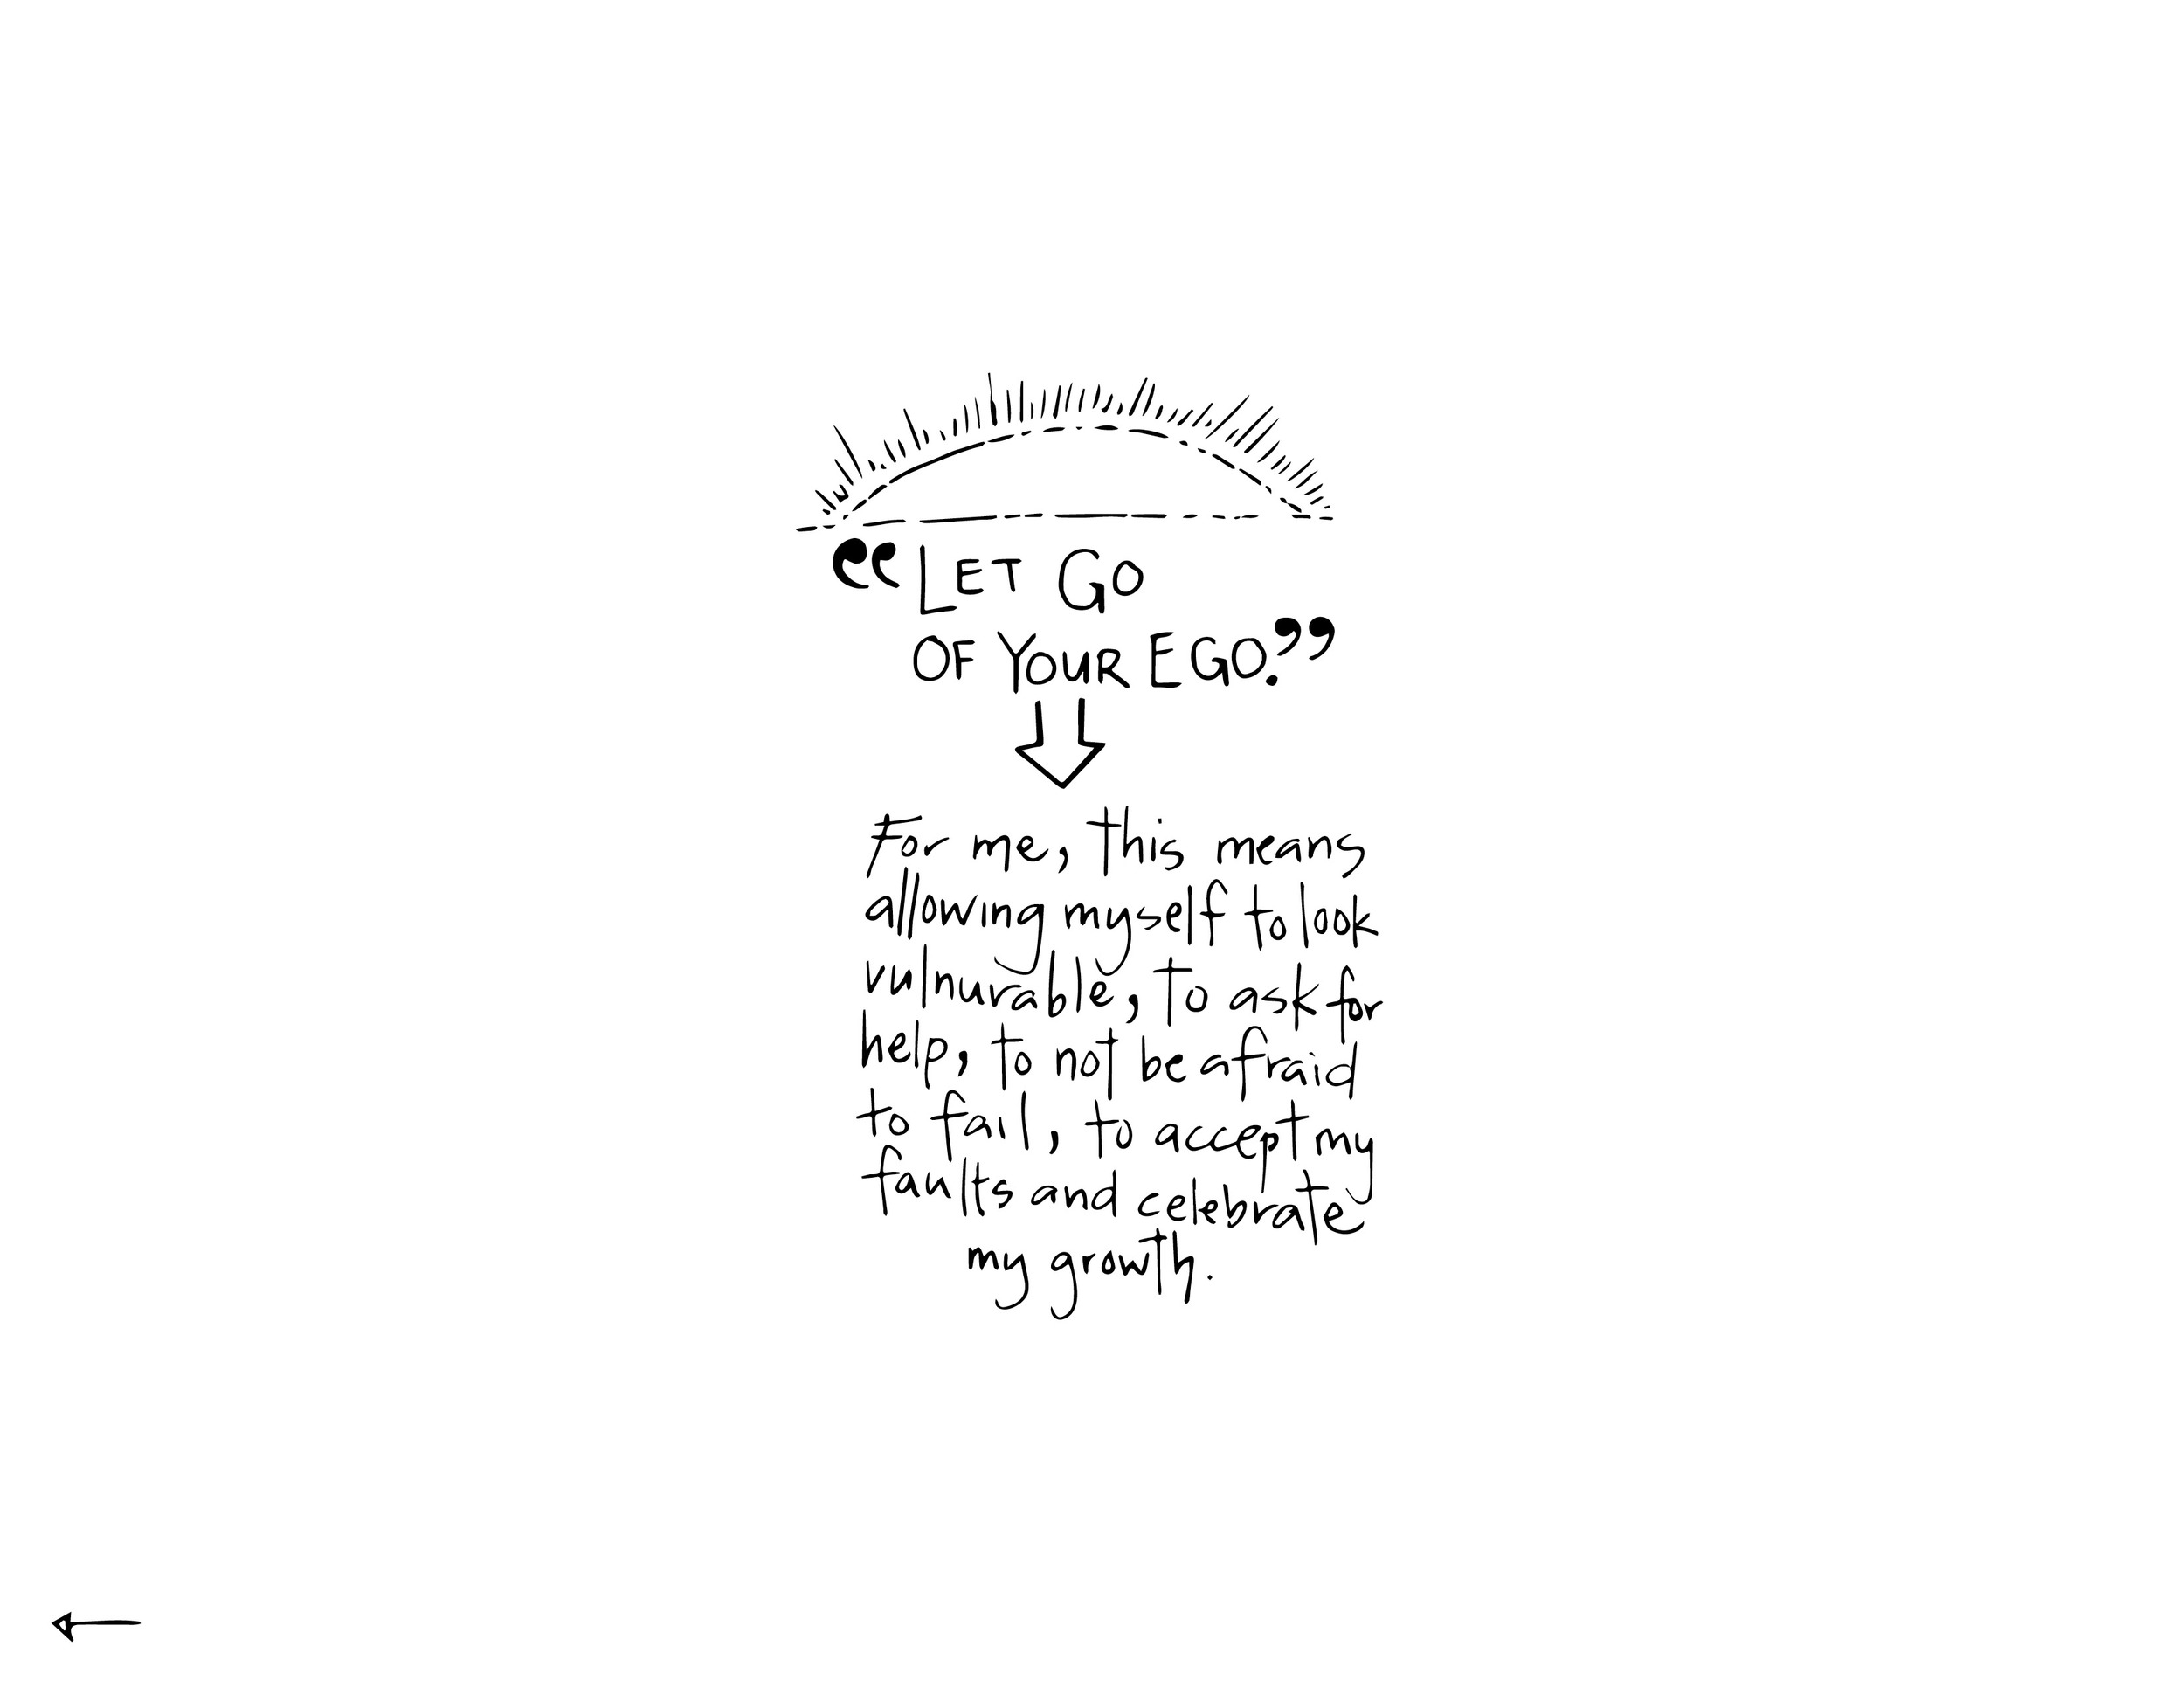 “LET GO
OF YOUR EGO.”
For me, this means
allowing myself to look
vulnurable, to ask for
help, to not be afraid
to fail, to accept my
faults and celebrate
my growth.